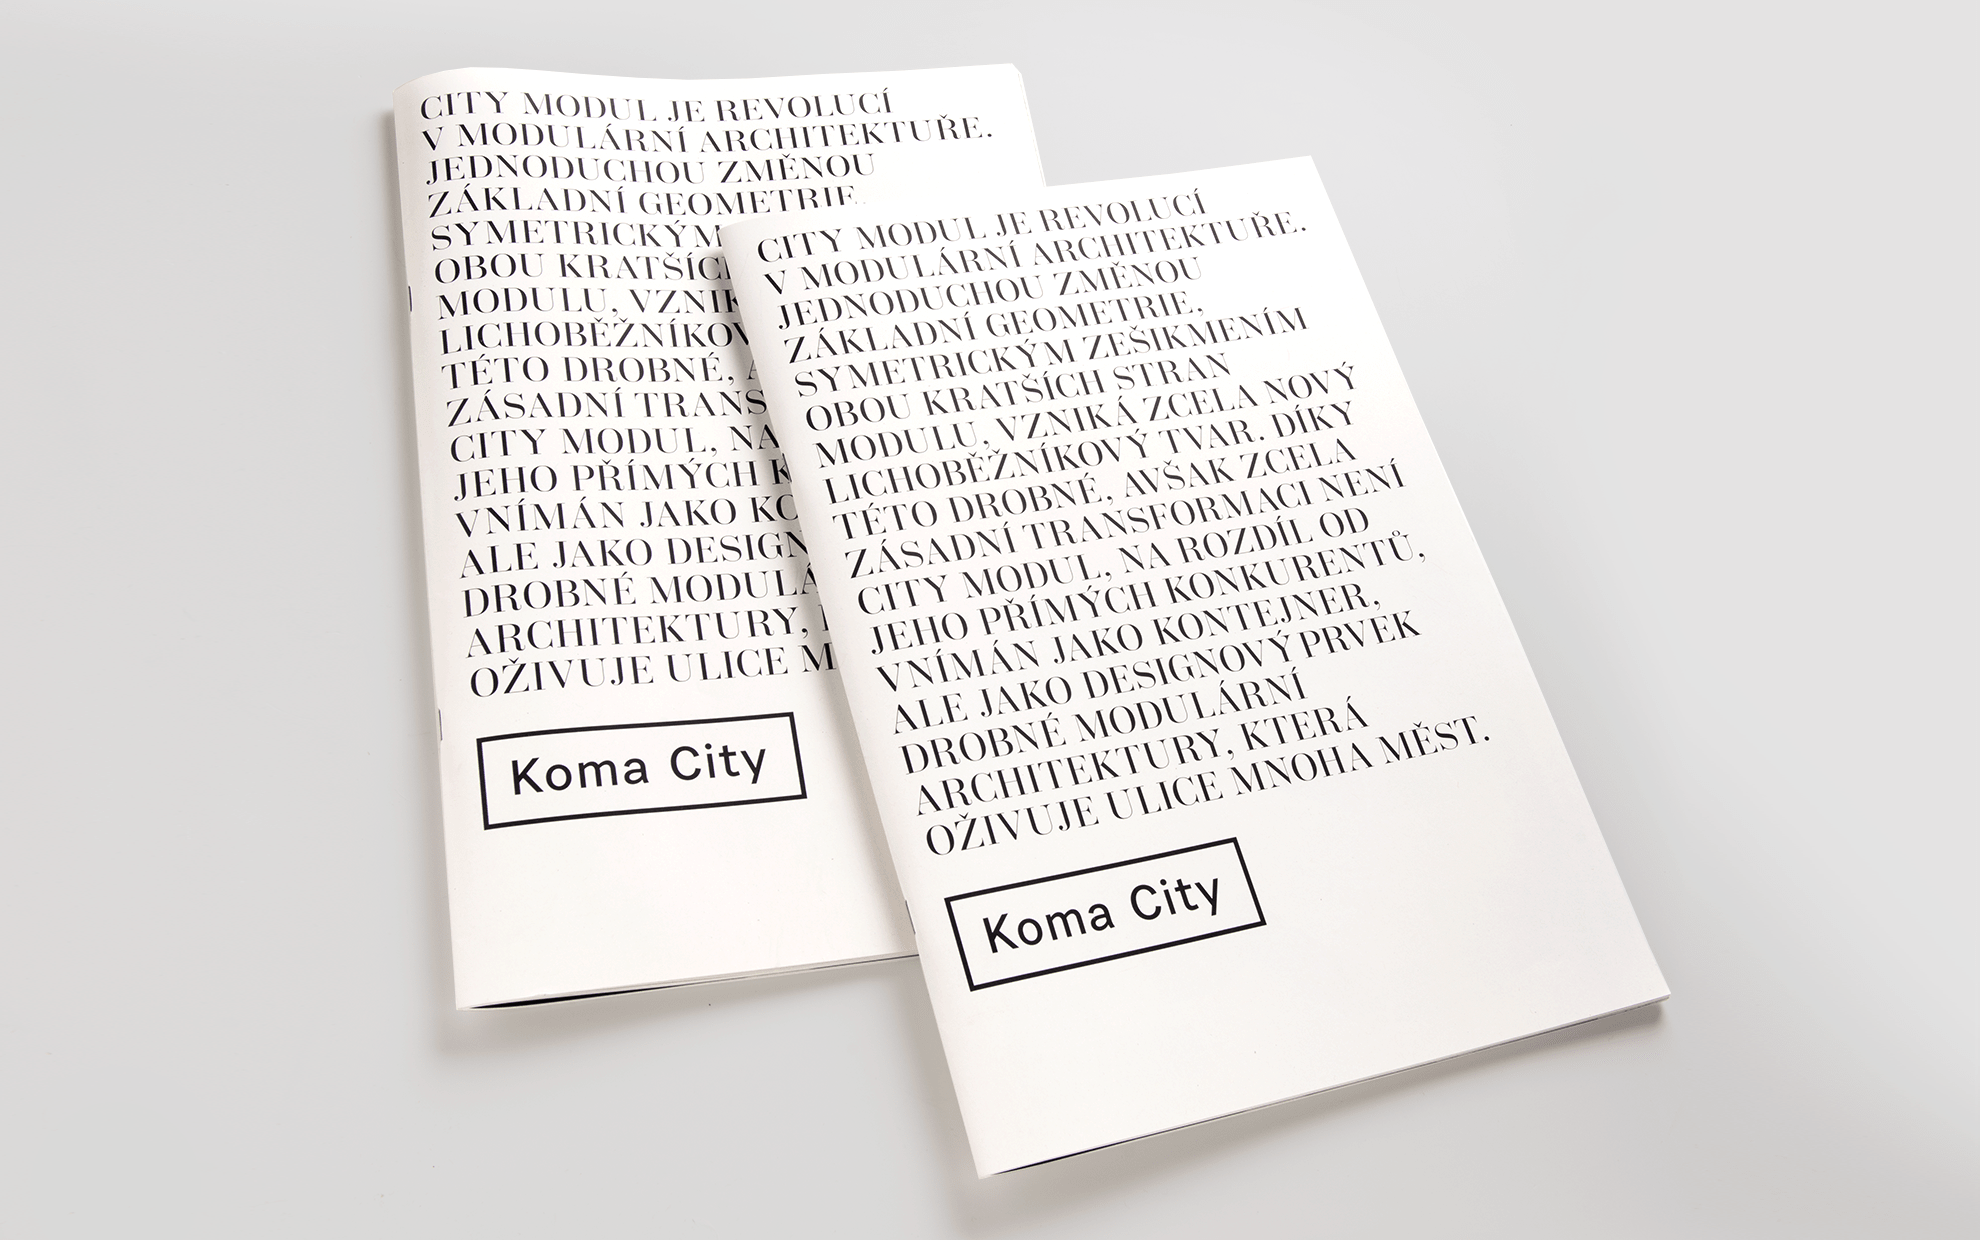 CITY MODUL JE REVOLUCÍ
V MODULÁRNÍ ARCHITEKTUŘE.
JEDNODUCHOU ZMĚNOU
ZÁKLADNÍ GEOMETRIE,
SYMETRICKÝM
OBOU
MODULU,
TÉTO DROBNÉ,
ZÁSADNÍ
CITY MODUL, NA
JEHO PŘÍMÝCH
VNÍMÁN JAKO
ALE JAKO
DROBNÉ
ARCHITEKTURY,
OŽIVUJE ULICE
Koma City
CITY MODUL JE REVOLUCÍ
V MODULÁRNÍ ARCHITEKTUŘE.
JEDNODUCHOU ZMĚNOU
ZÁKLADNÍ GEOMETRIE,
SYMETRICKÝM ZEŠIKMENÍM
OBOU KRATŠÍCH STRAN
MODULU, VZNIKÁ ZCELA NOVÝ
LICHOBĚŽNÍKOVÝ TVAR. DÍKY
TÉTO DROBNÉ, AVŠAK ZCELA
ZÁSADNÍ TRANSFORMACI NENÍ
CITY MODUL, NA ROZDÍL OD
JEHO PŘÍMÝCH KONKURENTŮ,
VNÍMÁN JAKO KONTEJNER,
ALE JAKO DESIGNOVÝ PRVEK
DROBNÉ MODULÁRNÍ
ARCHITEKTURY, KTERÁ
OŽIVUJE ULICE MNOHA MĚST.
Koma City